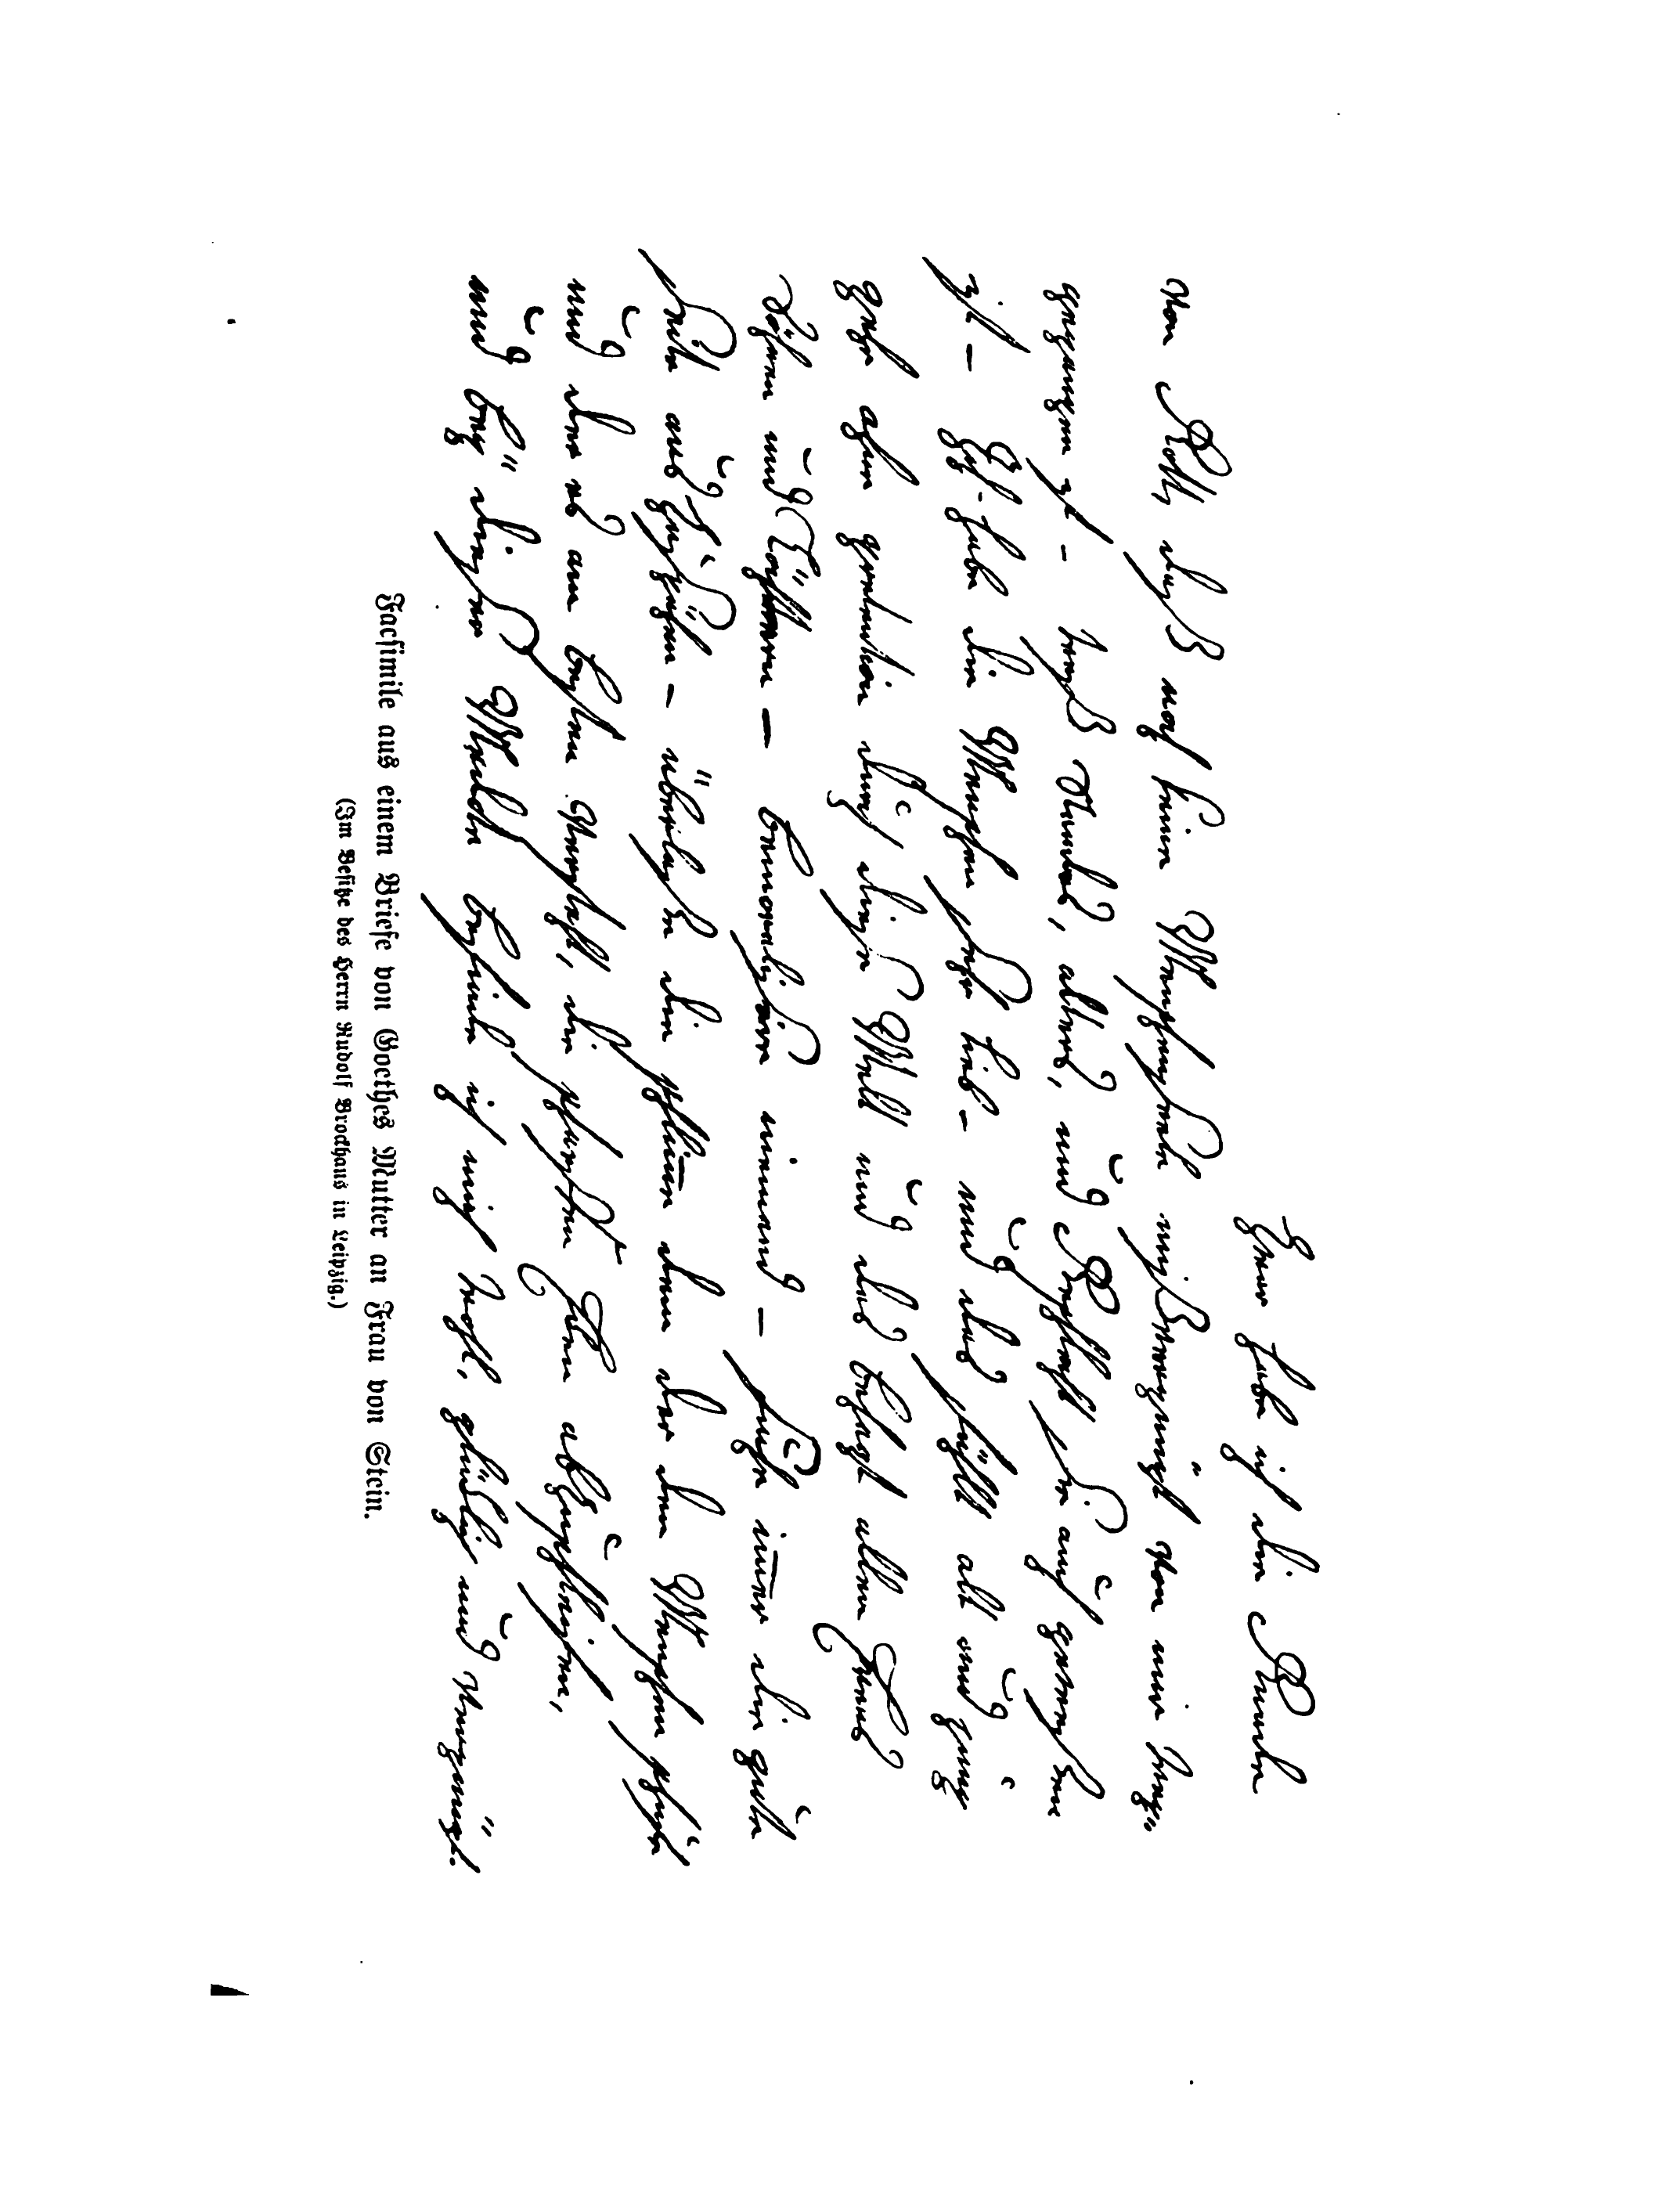 Zwar habe ich die Gnade
von Gott, daß noch keine Menschenseele mißvergnügt von mir weg"
gegangen ist - weß Standes, alters, und Geschlecht sie auch geweßen
ist - Ich habe die Menschen sehr lieb - und das fühlt alt und jung
gehe ohne pretention durch dieße Welt und das behagt allen Evens
Söhnen und Töchtern - bemoralisire niemand - suche immer die gute
seite auszuspähen - überlaße die schlimme dem der den Menschen schufe
und der es am besten versteht, die scharffen Ecken abzuschleifen,
und bey dießer Medote befinde ich mich wohl, glücklich und vergnügt.
Facsimile aus einem Briefe von Goethes Mutter an Frau von Stein.
(Im Besitze des Herrn Rudolf Brockhaus in Leipzig.)